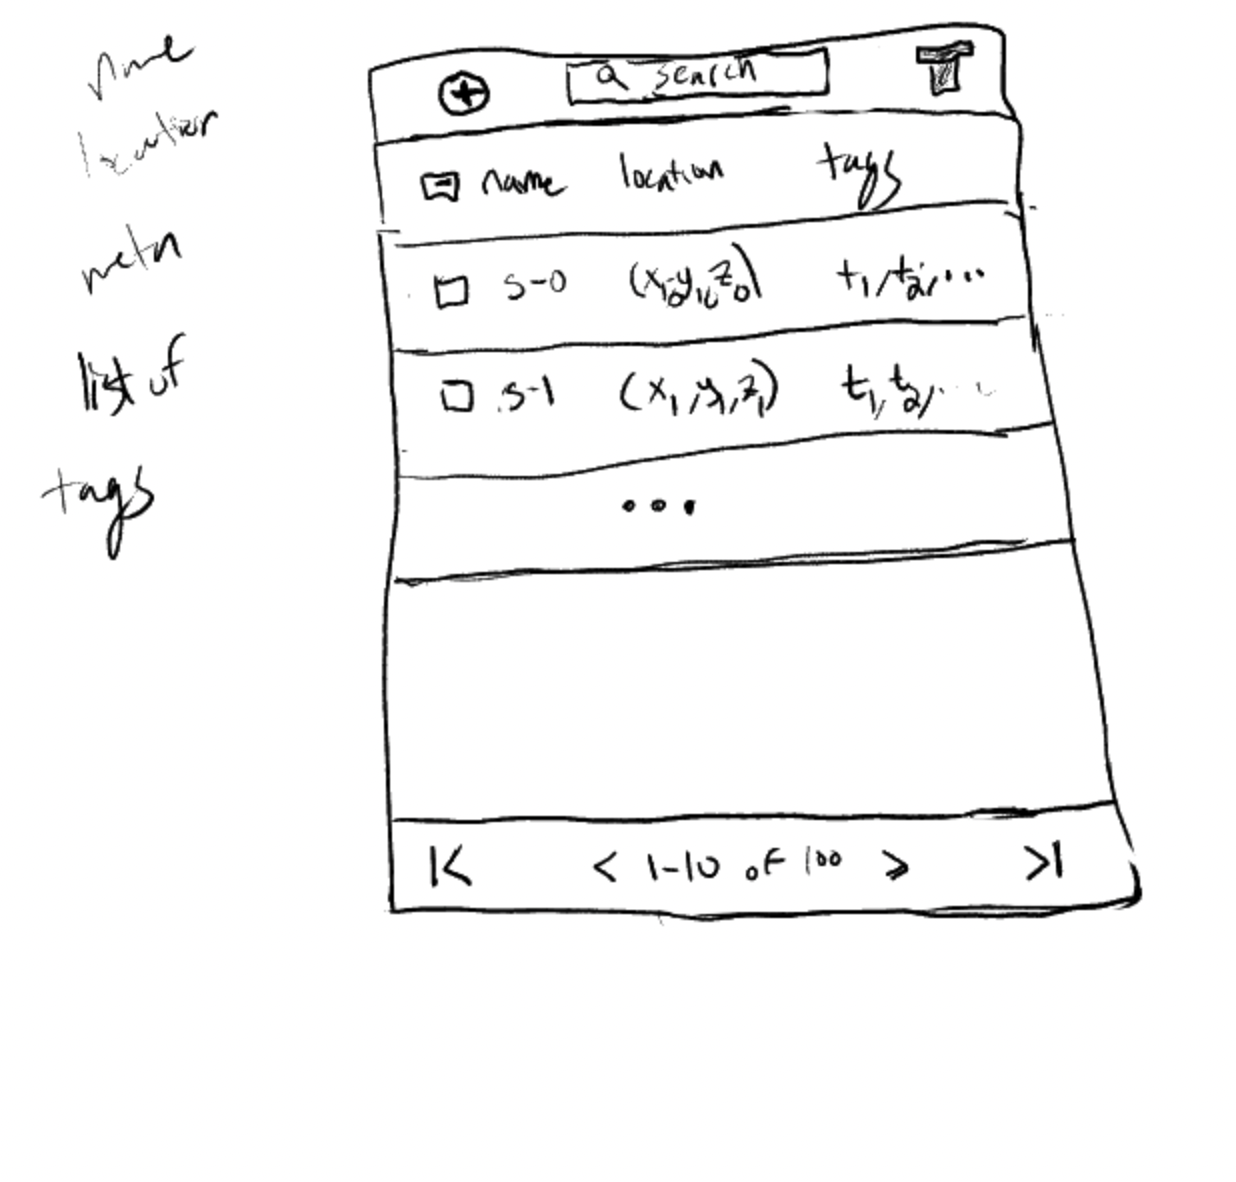 name
location
meta
list of
tags
search
name location tags
s-0 (x0, y0, z0) t1, t2, ...
s-1 (x1, y1, z1) t1, t2, ...
...
|< < 1-10 of 100 > >|